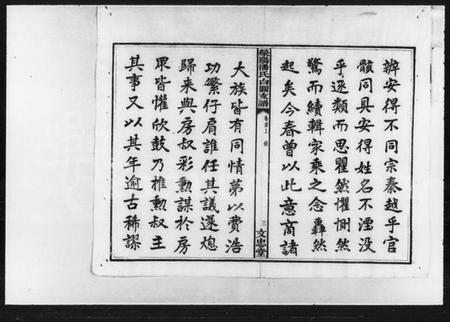 辦安得不同宗秦越乎官
骸同具安得姓名不湮没
乎逐類而思瞿然懼惻然
驚而續輯家乘之念轟然
起矣今春曾以此意商諸
滎陽潘氏白關支譜
卷首上
三
文忠堂
大族皆有同情第以費浩
功繁仔肩誰任其議遂熄
歸來與房叔彩勳謀於房
眾皆懽欣鼓乃推勳叔主
其事又以其年逾古稀謬